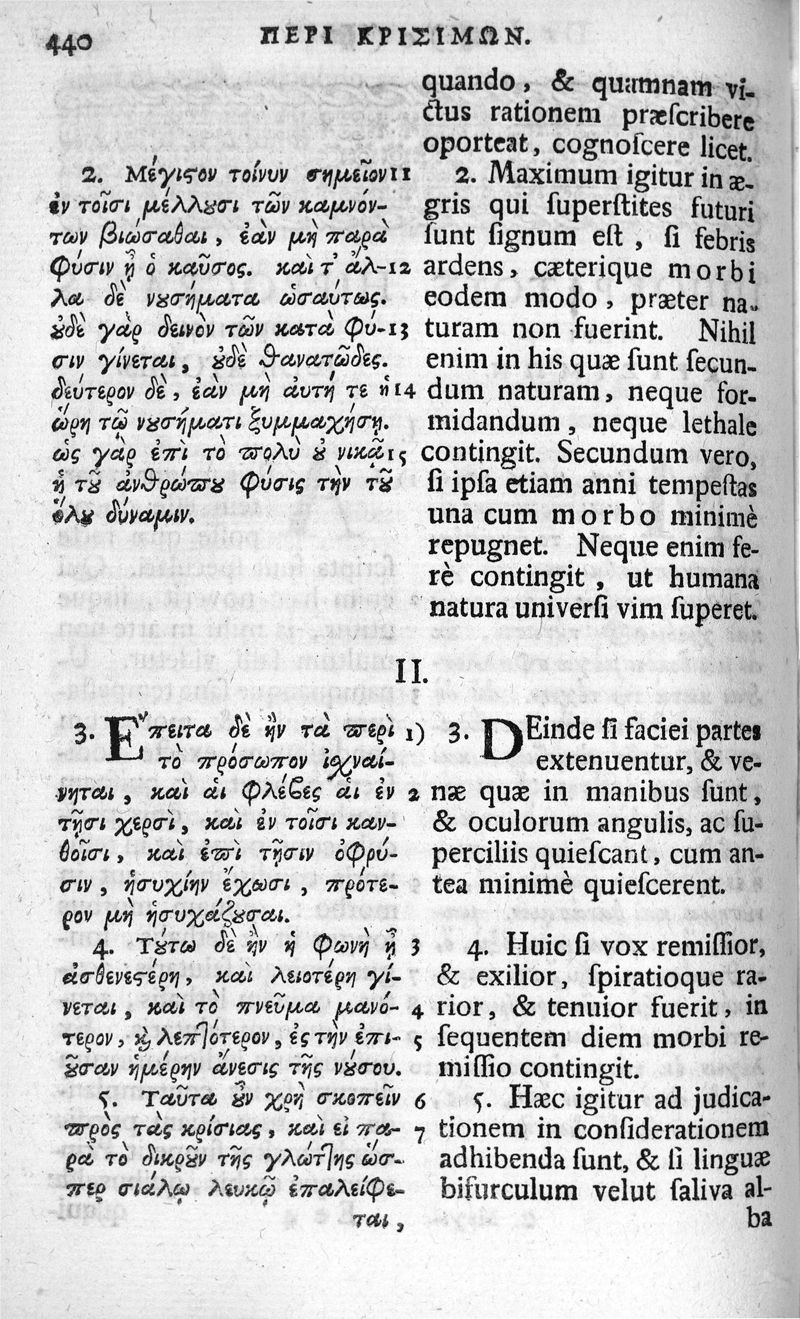 440 ΠΕΡΙ ΚΡΙΣΙΜΩΝ.
2. Μέγιϛον τοίνυν σημεῖον 11
ἐν τοῖσι μέλλȣσι τῶν καμνόν-
των βιώσαθαι, ἐὰν μὴ παρὰ
φύσιν ᾖ ὁ καῦσος. καὶ τ' ἄλ- 12
λα δὲ νȣσήματα ὡσαύτως.
ȣδὲ γὰρ δεινὸν τῶν κατὰ φύ- 13
σιν γίνεται, ȣδὲ θανατῶδες.
δεύτερον δὲ, ἐὰν μὴ ἀυτή τε ἡ 14
ὥρη τῷ νȣσήματι ξυμμαχήσῃ.
ὡς γὰρ ἐπὶ τὸ πολὺ ȣ νικᾷ 15
ἡ τȣ͂ ἀνθρώπȣ φύσις τὴν τȣ͂
ὅλȣ δύναμιν.
quando, & quamnam vi-
ctus rationem præſcribere
oporteat, cognoſcere licet.
2. Maximum igitur in æ-
gris qui ſuperſtites futuri
ſunt ſignum eſt, ſi febris
ardens, cæterique morbi
eodem modo, præter na-
turam non fuerint. Nihil
enim in his quæ ſunt ſecun-
dum naturam, neque for-
midandum, neque lethale
contingit. Secundum vero,
ſi ipſa etiam anni tempeſtas
una cum morbo minimè
repugnet. Neque enim fe-
rè contingit, ut humana
natura univerſi vim ſuperet.
II.
3. Ἔπειτα δὲ ἢν τὰ περὶ 1)
τὸ πρόσωπον ἰχναί-
νηται, καὶ ἁι φλέβες ἁι ἐν 2
τῇσι χερσὶ, καὶ ἐν τοῖσι καν-
θοῖσι, καὶ ἐπὶ τῇσιν ὀφρύ-
σιν, ἡσυχίην ἔχωσι, πρότε-
ρον μὴ ἡσυχάζȣσαι.
4. Τȣ́τῳ δὲ ἢν ἡ φωνὴ ᾖ 3
ἀσθενεϛέρη, καὶ λειοτέρη γί-
νεται, καὶ τὸ πνεῦμα μανό- 4
τερον, ϗ λεπτότερον, ἐς τὴν ἐπι- 5
ȣ͂σαν ἡμέρην ἄνεσις τῆς νȣ́σου.
5. Ταῦτα ȣ̓͂ν χρὴ σκοπεῖν 6
πρὸς τὰς κρίσιας, καὶ εἰ πα- 7
ρὰ τὸ δικρȣ͂ν τῆς γλώττης ὥσ-
περ σιάλῳ λευκῷ ἐπαλείφε-
ται,
3. DEinde ſi faciei partes
extenuentur, & ve-
næ quæ in manibus ſunt,
& oculorum angulis, ac ſu-
perciliis quieſcant, cum an-
tea minimè quieſcerent.
4. Huic ſi vox remiſſior,
& exilior, ſpiratioque ra-
rior, & tenuior fuerit, in
ſequentem diem morbi re-
miſſio contingit.
5. Hæc igitur ad judica-
tionem in conſiderationem
adhibenda ſunt, & ſi linguæ
bifurculum velut ſaliva al-
ba